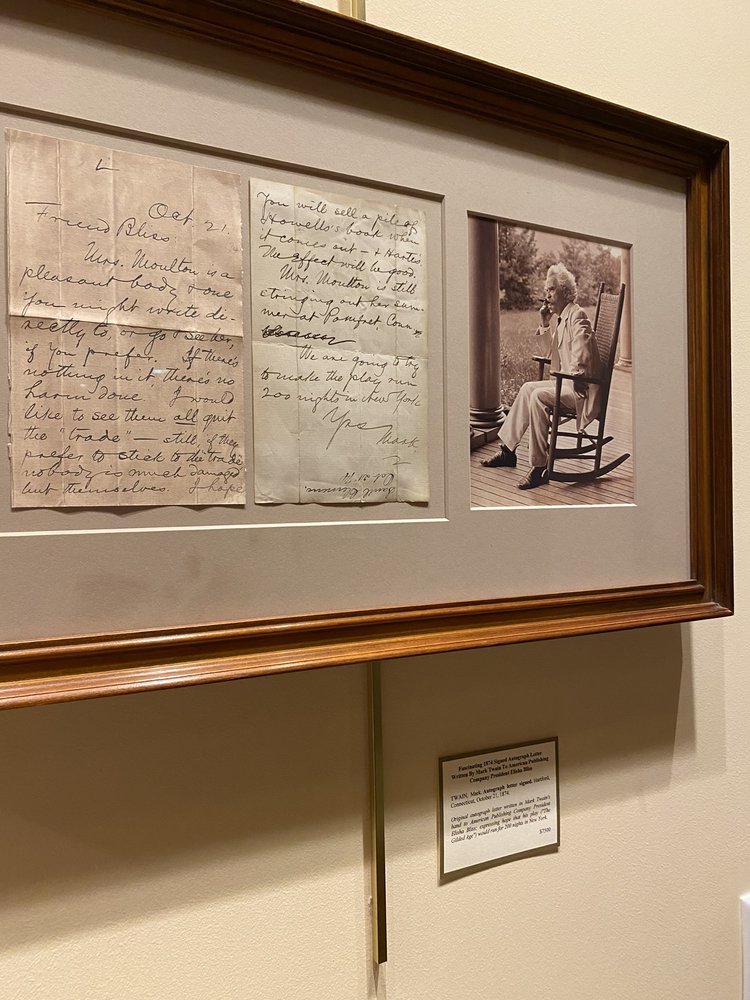 Oct. 21.
Friend Bliss:
Mrs. Moulton is a
pleasant body & one
you might write di-
rectly to, or go & see her,
if you prefer. If there's
nothing in it, there's no
harm done. I would
like to see them all quit
the "trade" — still, if they
prefer to stick to the trade
nobody is much damaged
but themselves. I hope
You will sell a pile of
Howells's book when
it comes out — & Harte's.
The effect will be good.
Mrs. Moulton is still
stringing out her sum-
mer at Pomfret Conn
We are going to try
to make the play run
200 nights in New York
Yrs
Mark.
Saml. Clemens.
Oct 21 '74
Fascinating 1874 Signed Autograph Letter
Written By Mark Twain To American Publishing
Company President Elisha Bliss
TWAIN, Mark. Autograph letter signed. Hartford,
Connecticut, October 21, 1874.
Original autograph letter written in Mark Twain's
hand to American Publishing Company President
Elisha Bliss; expressing hope that his play ("The
Gilded Age") would run for 200 nights in New York.
$7500